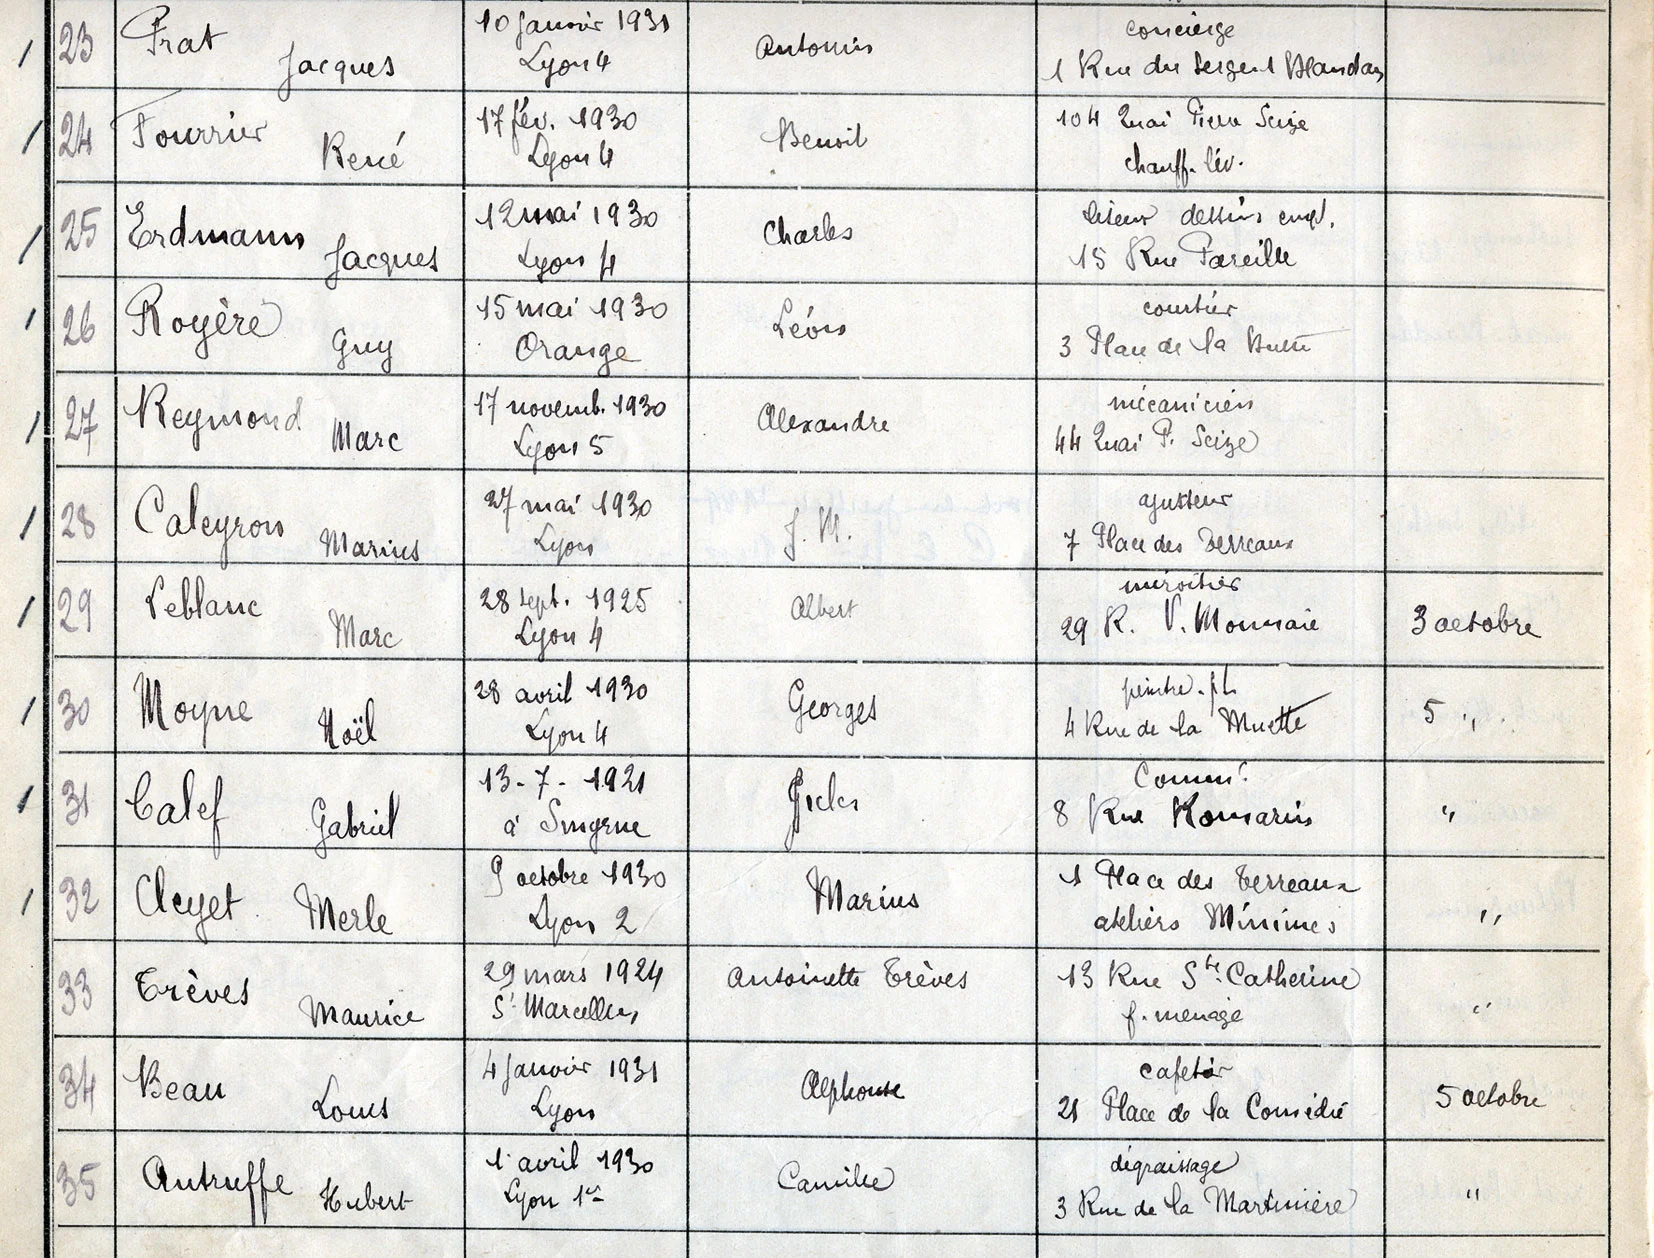 23 Prat Jacques 10 Janvier 1931 Lyon 4 Antonin concierge 1 Rue du Sergent Blandan
24 Fourrier René 17 fév. 1930 Lyon 4 Benoit 104 Quai Pierre Scize chauff. liv.
25 Erdmann Jacques 12 mai 1930 Lyon 4 Charles liseur dessins empl. 15 Rue Pareille
26 Royère Guy 15 mai 1930 Orange Léon courtier 3 Place de la Butte
27 Reymond Marc 17 novemb. 1930 Lyon 5 Alexandre mécanicien 44 Quai P. Scize
28 Caleyron Marius 27 mai 1930 Lyon J. M. ajusteur 7 Place des Terreaux
29 Leblanc Marc 28 sept. 1925 Lyon 4 Albert miroitier 29 R. V. Monnaie 3 octobre
30 Moyne Noël 28 avril 1930 Lyon 4 Georges peintre. pl. 4 Rue de la Muette 5 "
31 Calef Gabriel 13-7-1921 à Smyrne Comm! 8 Rue Romarin "
32 Cleyet Merle 9 octobre 1930 Lyon 2 Marius 1 Place des Terreaux ateliers Minimes "
33 Trèves Maurice 29 mars 1924 St Marcellin Antoinette Trèves 13 Rue Ste Catherine f. menage "
34 Beau Louis 4 Janvier 1931 Lyon Alphonse cafetier 21 Place de la Comédie 5 octobre
35 Autruffe Hubert 1 avril 1930 Lyon 1er Camille dégraissage 3 Rue de la Martinière "